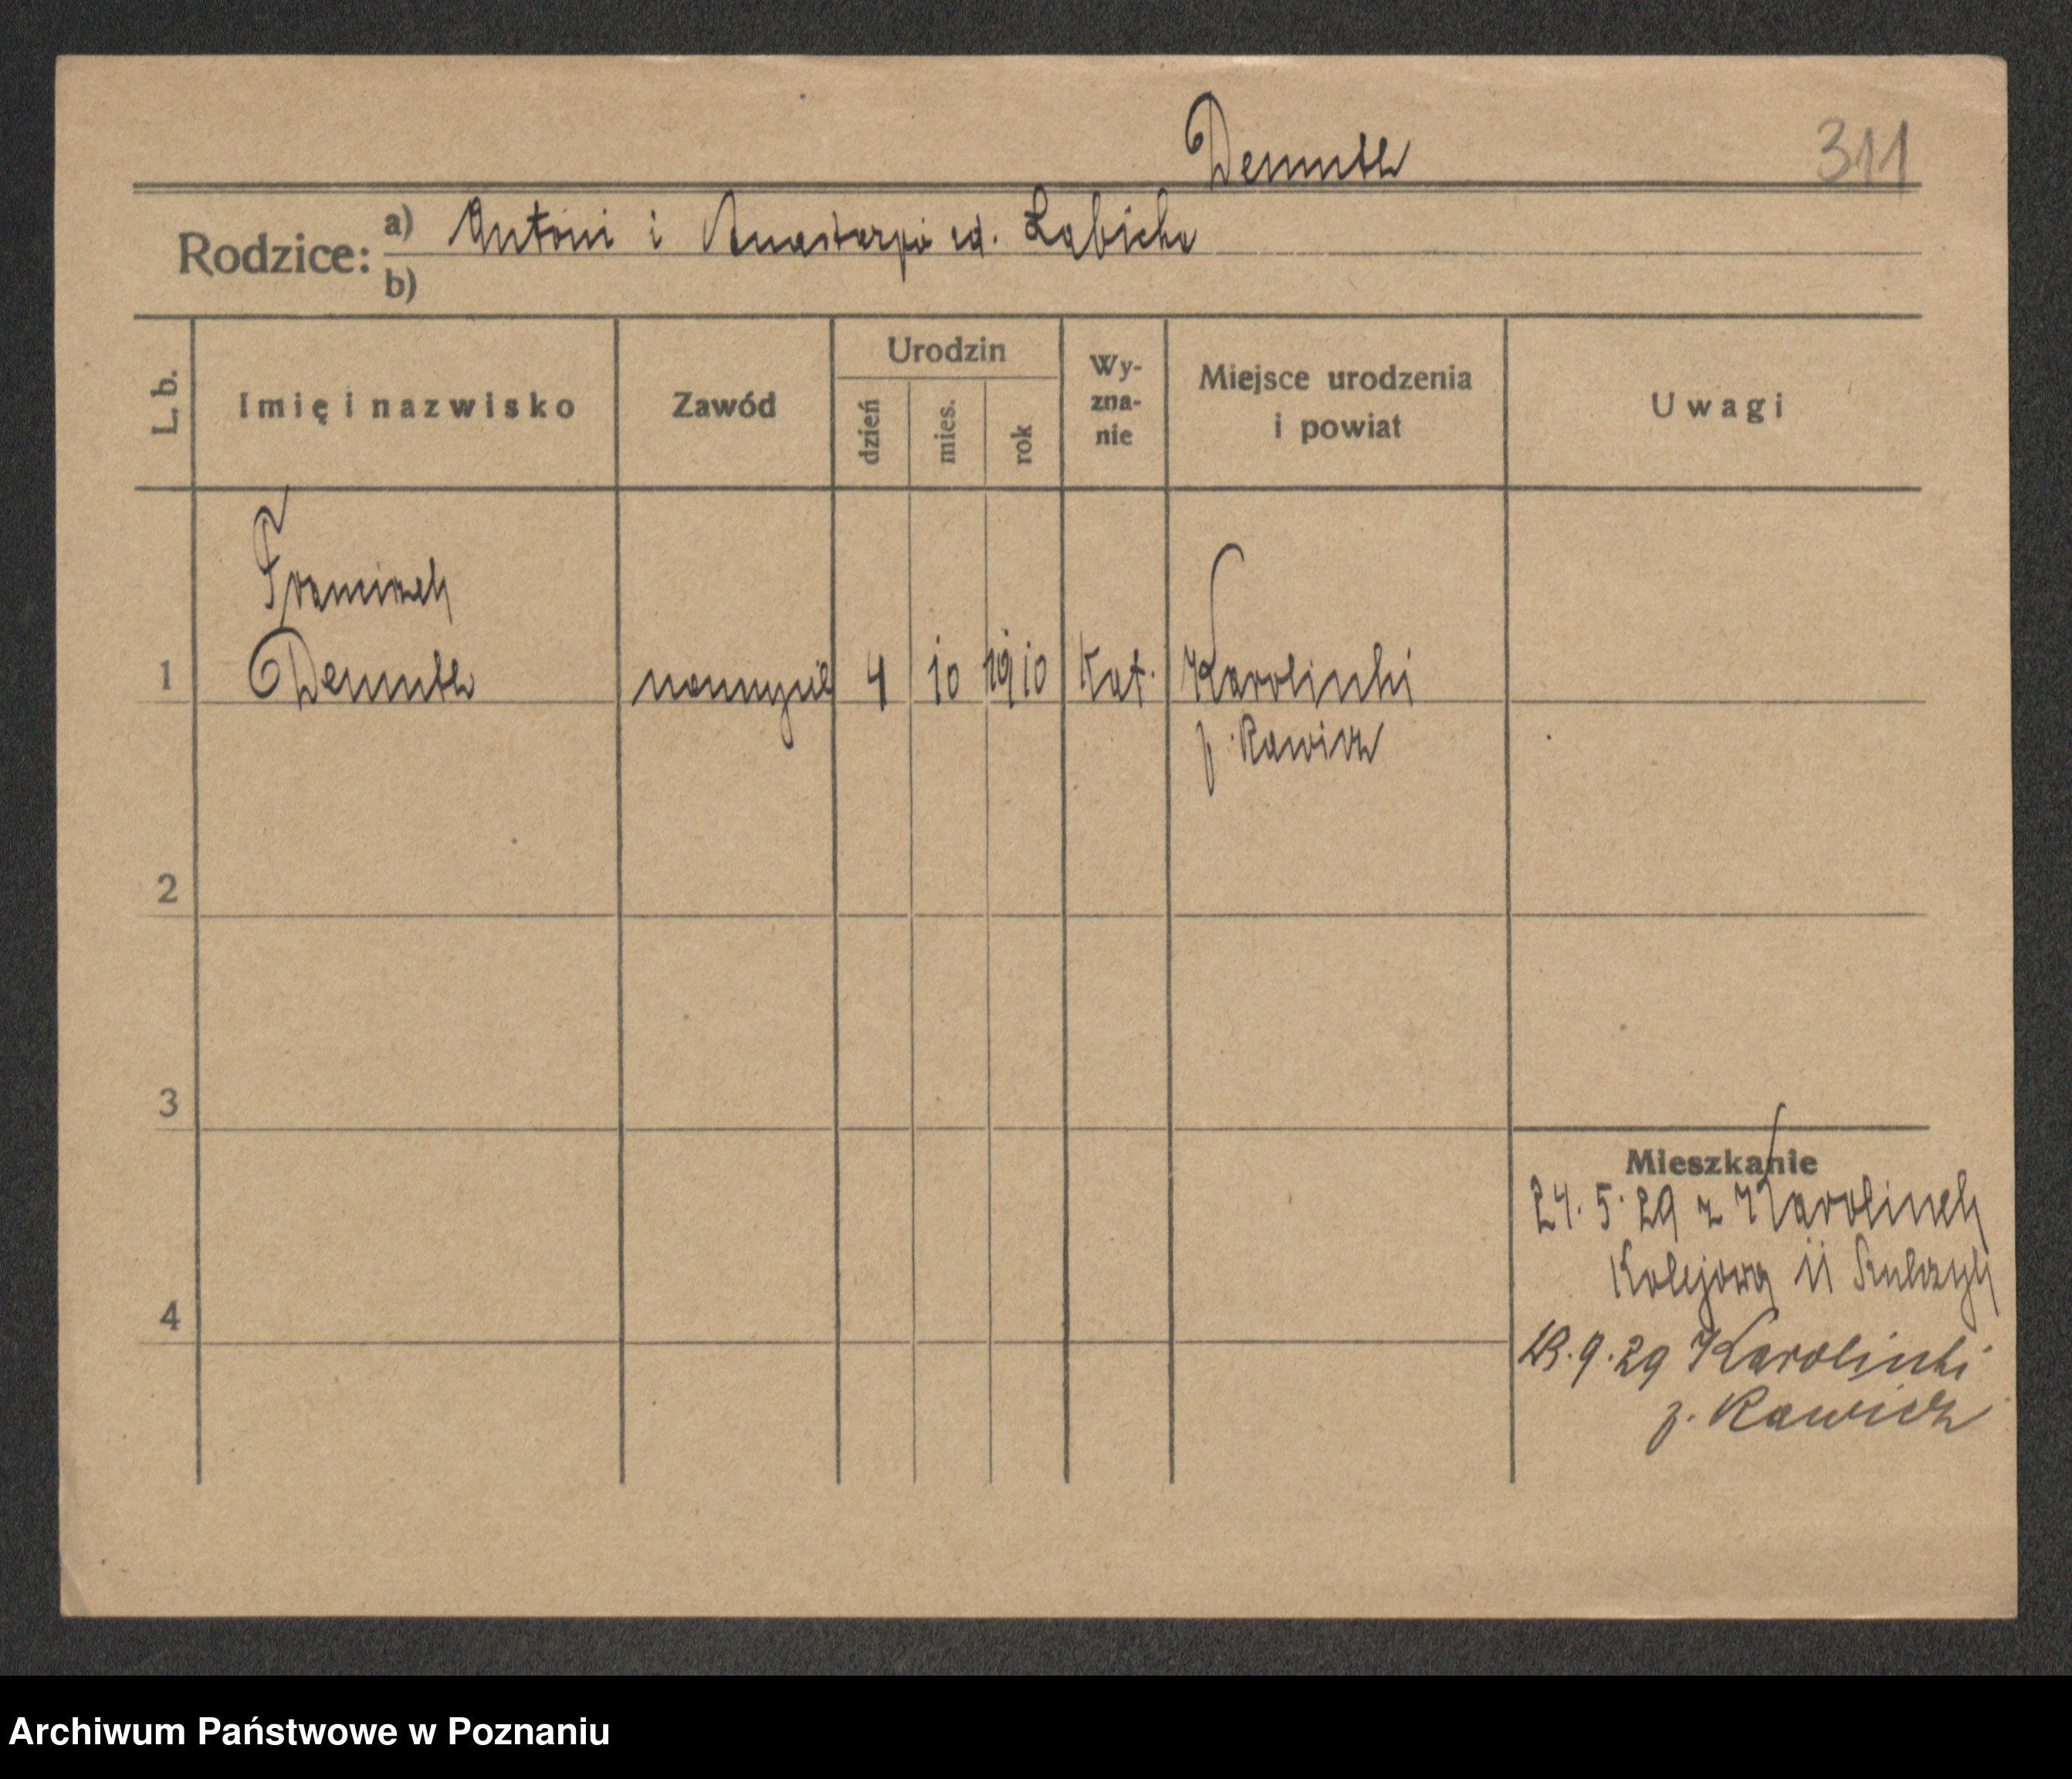 Demuth
311
Rodzice: a) Antoni i Anastazja zd. Łabicha
b)
L. b.
Imię i nazwisko
Zawód
Urodzin
dzień
mies.
rok
Wy-
zna-
nie
Miejsce urodzenia
i powiat
Uwagi
Franciszek
1 Demuth nauczyciel 4 10 1910 Kat. Karolinki
p. Rawicz
2
3
4
Mieszkanie
24. 5. 29 z Karolinek
Kolejowa 11
9. 29 Karolinki
p. Rawicz
Archiwum Państwowe w Poznaniu